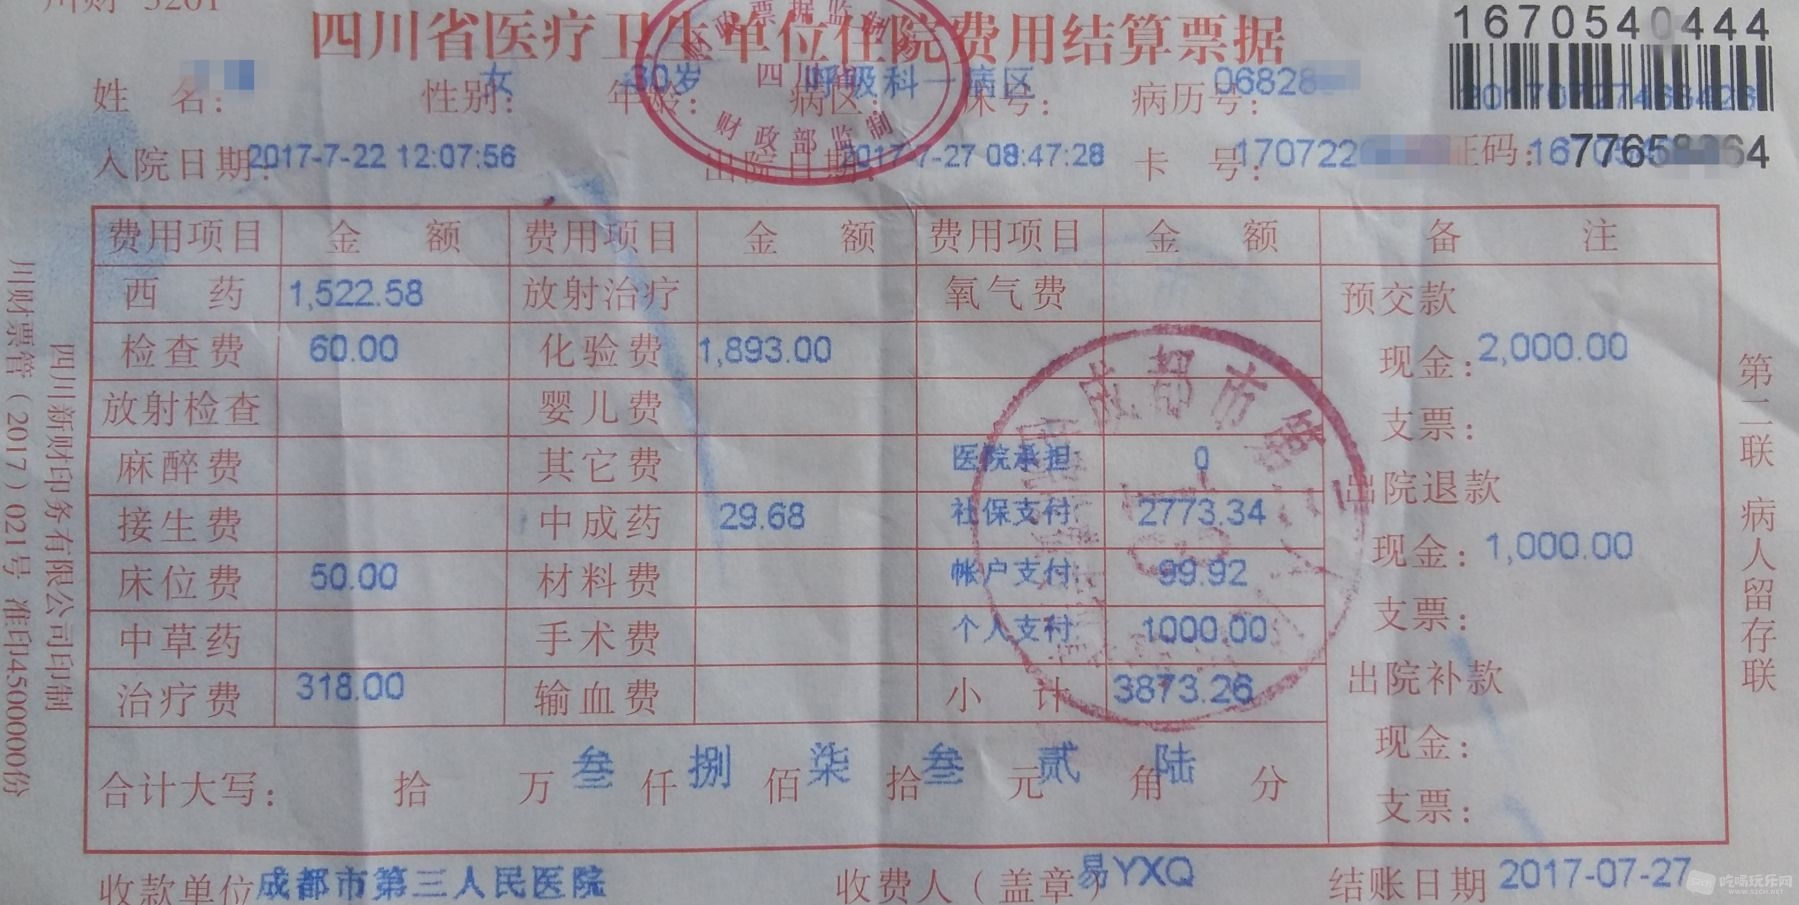 川财 3201
四川省医疗卫生单位住院费用结算票据
1670540444
姓 名: 性别:女 年龄:30岁 病区:呼吸科一病区 床号: 病历号:06828
入院日期:2017-7-22 12:07:56 出院日期:2017-7-27 08:47:28 卡 号:170722 证码:
财政票据监制
四川省
财政部监制
费用项目 金 额 费用项目 金 额 费用项目 金 额 备 注
西 药 1,522.58 放射治疗 氧气费 预交款
检查费 60.00 化验费 1,893.00 现金:2,000.00
放射检查 婴儿费 支票:
麻醉费 其它费 医院承担 0 出院退款
接生费 中成药 29.68 社保支付 2773.34 现金:1,000.00
床位费 50.00 材料费 帐户支付 99.92 支票:
中草药 手术费 个人支付 1000.00 出院补款
治疗费 318.00 输血费 小 计 3873.26 现金:
支票:
合计大写: 拾 万 叁 仟 捌 佰 柒 拾 叁 元 贰 角 陆 分
收款单位 成都市第三人民医院 收费人(盖章) 易YXQ 结账日期 2017-07-27
成都市第
第二联 病人留存联
四川新财印务有限公司印制
川财票管(2017)021号 准印4500000份
吃喝玩乐网